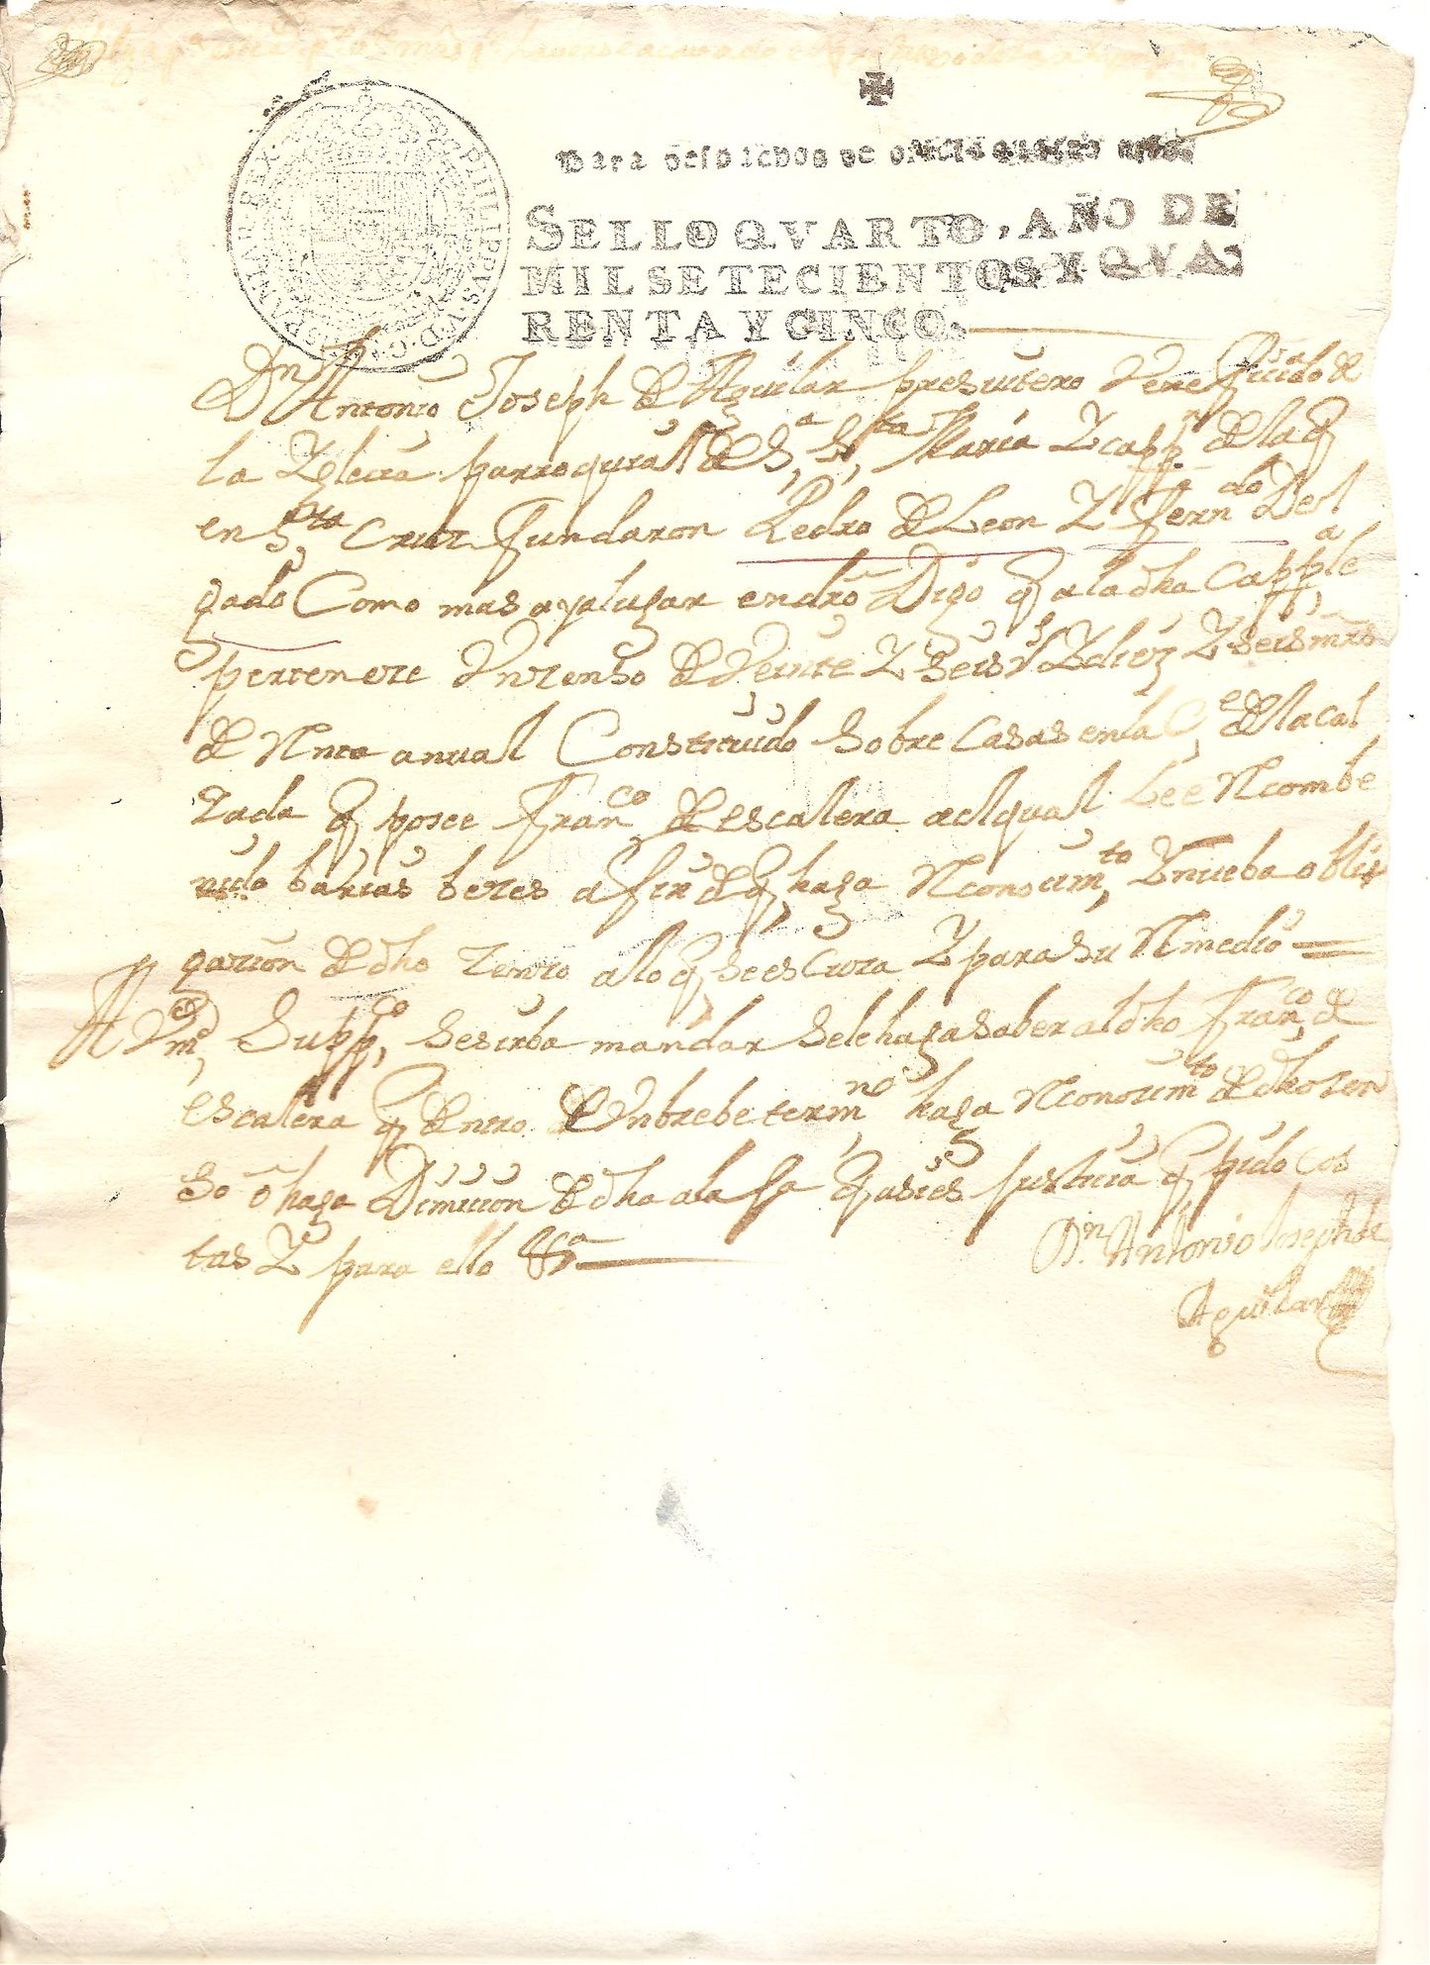 PHILIPPVS.V.D.G. HISPANIAR.REX.
Para despachos de oficio quatro mrs.
SELLO QVARTO, AÑO DE
MIL SETECIENTOS Y QVA.
RENTA Y CINCO.
Dn Antonio Joseph de Aguilar presvitero Veneficiado de
la Yglecia parroquial de Sa, Sta, Maria Y capp.n de la q
en Sta Cruz fundaron Pedro de Leon Y Ferndo Del
gado Como mas aya lugar en dro Digo q a la dha Cappa, le
pertenece Vn zenso de Veinte Y seis rs Y diez Y seis mrs
de Renta anual Constituido Sobre Casas en la Ce, de la cal
zada q posee Franco de escalera a el qual se le e Rcombe
nido barias bezes a fin de q haga Rconocimto, Y nueba obli
gacion de dho zenso a lo q se escusa Y para su Rmedio
A Vmd, Suppco, se sirba mandar se le haga saber al dho Franco, de
escalera q dentro de Vn brebe termno, haga Rconocimto de dho zen
so ô haga Dimicion de dha alaja q asi es justicia q pido cos
tas Y para ello &a
Dn. Antonio Joseph de
Aguilar